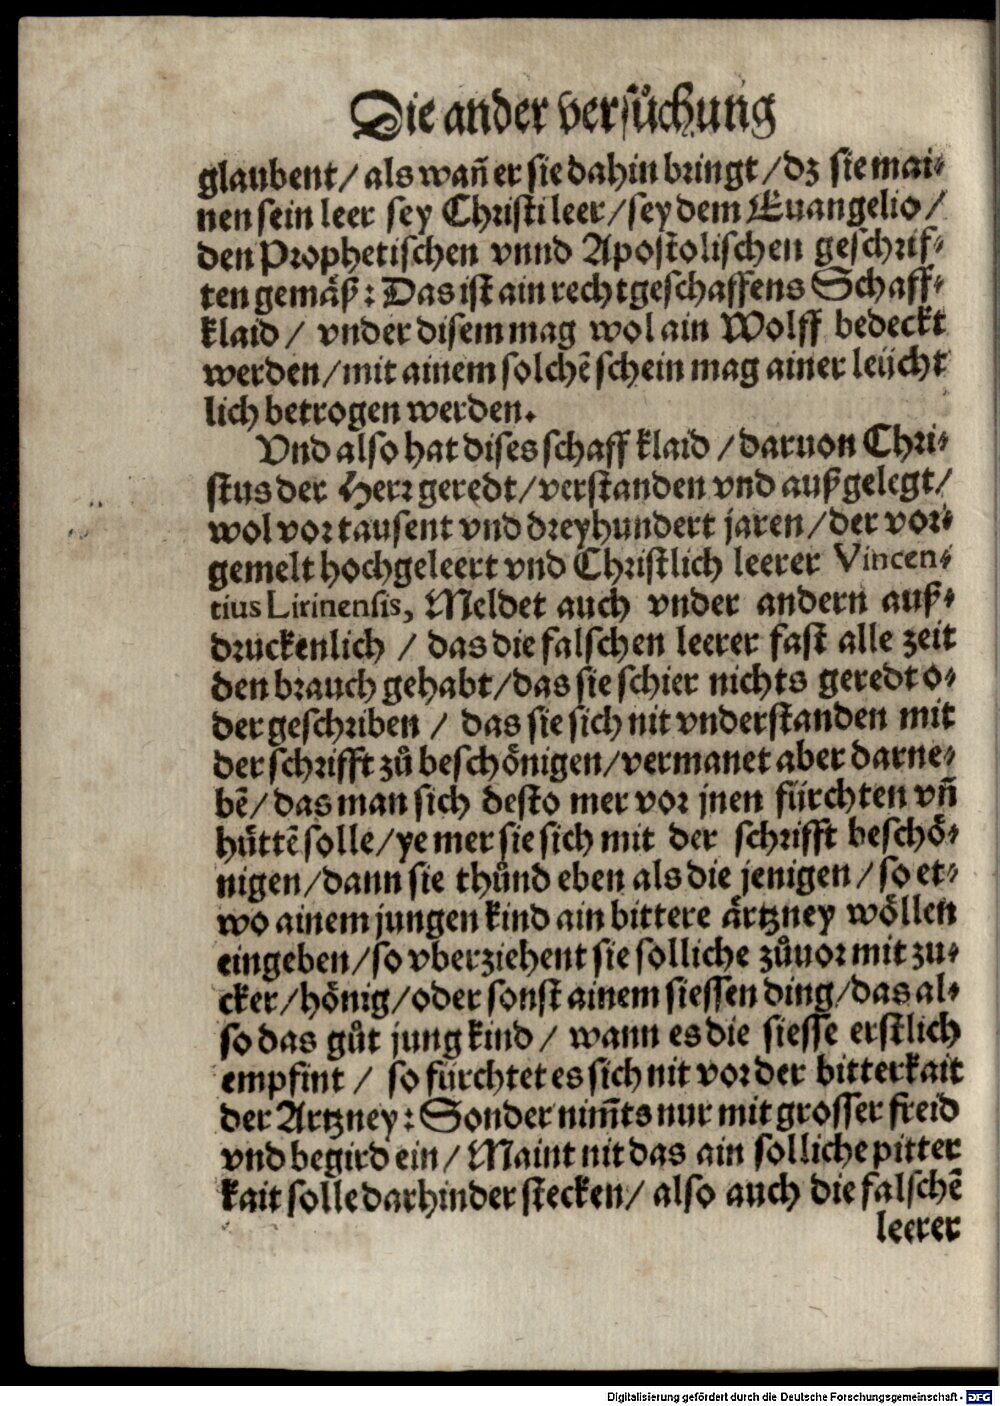 Die ander versuͤchung
glaubent/ als wañ er sie dahin bringt/ dz sie mai⸗
nen sein leer sey Christi leer/ sey dem Euangelio/
den Prophetischen vnnd Apostolischen geschrif⸗
ten gemaͤß: Das ist ain rechtgeschaffens Schaff⸗
klaid/ vnder disem mag wol ain Wolff bedeckt
werden/ mit ainem solchẽ schein mag ainer leücht
lich betrogen werden.
Vnd also hat dises schaff klaid/ daruon Chri⸗
stus der Herr geredt/ verstanden vnd außgelegt/
wol vor tausent vnd dreyhundert jaren/ der vor⸗
gemelt hochgeleert vnd Christlich leerer Vincen⸗
tius Lirinensis, Meldet auch vnder andern auß⸗
druckenlich/ das die falschen leerer fast alle zeit
den brauch gehabt/ das sie schier nichts geredt o⸗
der geschriben/ das sie sich nit vnderstanden mit
der schrifft zuͦ beschoͤnigen/ vermanet aber darne⸗
bẽ/ das man sich desto mer vor jnen fürchten vñ
huͤttẽ solle/ ye mer sie sich mit der schrifft beschoͤ⸗
nigen/ dann sie thuͦnd eben als die jenigen/ so et⸗
wo ainem jungen kind ain bittere aͤrtzney woͤllen
eingeben/ so vberziehent sie solliche zuͦuor mit zu⸗
cker/ hoͤnig/ oder sonst ainem siessen ding/ das al⸗
so das guͦt jung kind/ wann es die siesse erstlich
empfint/ so fürchtet es sich nit vor der bitterkait
der Artzney: Sonder nim̃ts nur mit grosser freid
vnd begird ein/ Maint nit das ain solliche pitter
kait solle darhinder stecken/ also auch die falschẽ
leerer
Digitalisierung gefördert durch die Deutsche Forschungsgemeinschaft - DFG